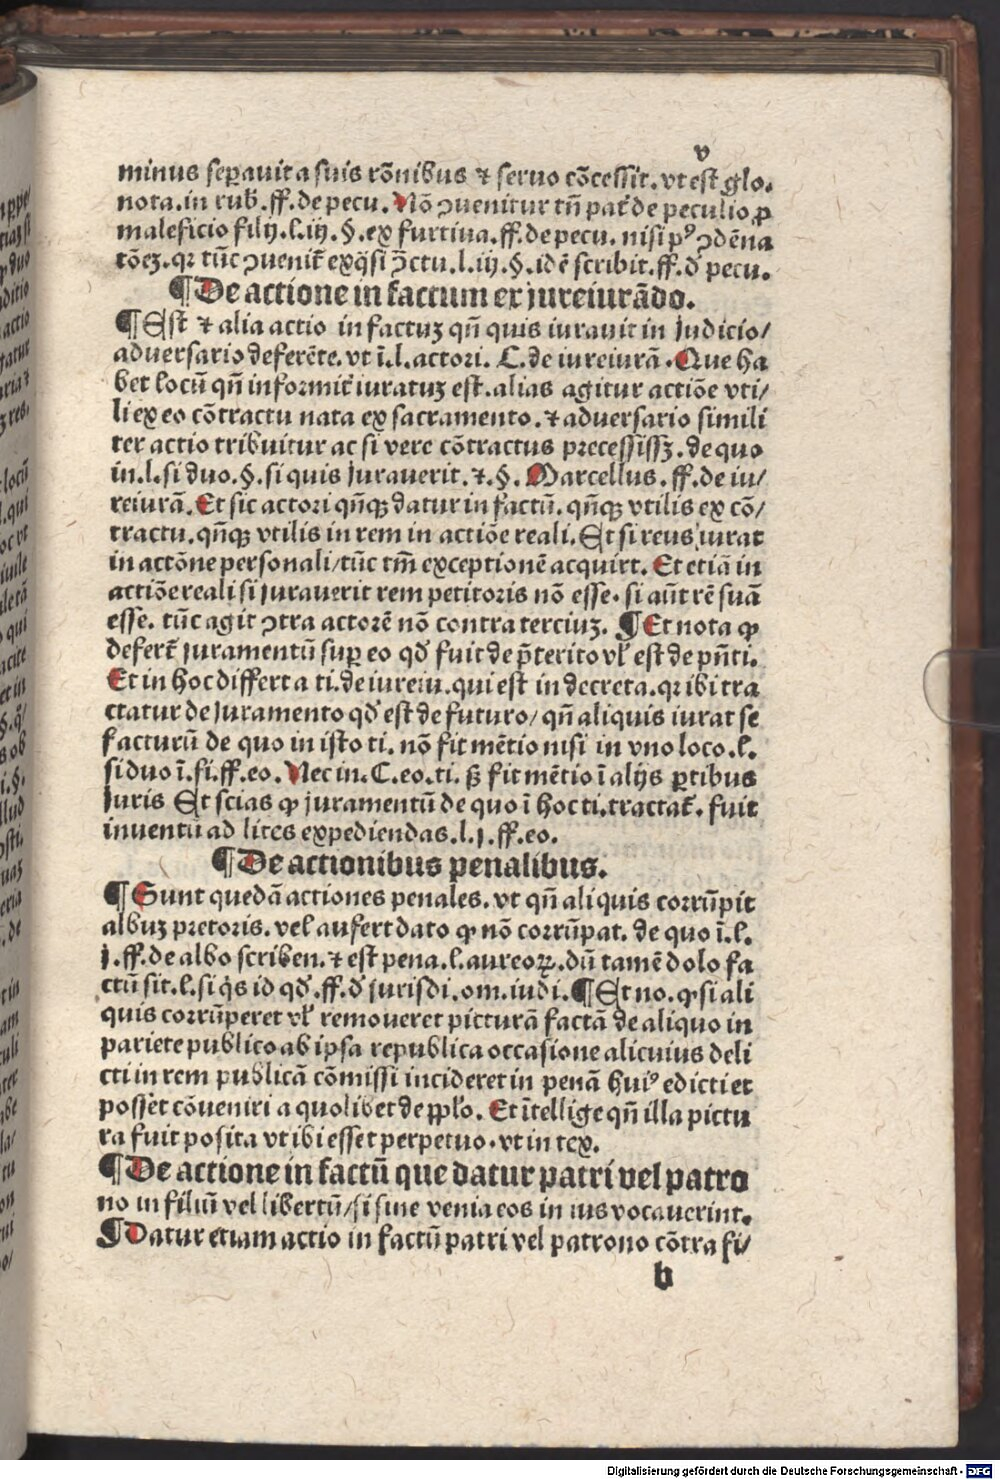 v
minus separauit a suis rõnibus ⁊ seruo cõcessit. vt est glo.
nota. in rub̃. ff. de pecu. Nõ ꝯuenitur tñ pat̃ de peculio ꝓ
maleficio filij. l. iij. §. ex furtiua. ff. de pecu. nisi pꝰ ꝯdẽna
tõeꝫ. qꝛ tũc ꝯuenit̃ exq̃si ꝯ̃ctu. l. iij. §. idẽ scribit. ff. đ pecu.
¶ De actione in factum ex jureiurãdo.
¶ Est ⁊ alia actio in factuꝫ qñ quis iurauit in judicio/
aduersario deferẽte. vt ĩ. l. actori. C. de iureiurã. Que ha
bet locũ qñ informit̃ iuratuꝫ est. alias agitur actiõe vti/
li ex eo cõtractu nata ex sacramento. ⁊ aduersario simili
ter actio tribuitur ac si vere cõtractus precessissꝫ. de quo
in. l. si duo. §. si quis jurauerit. ⁊. §. Marcellus. ff. de iu/
reiurã. Et sic actori qñqꝫ datur in factũ. qñqꝫ vtilis ex cõ/
tractu. qñqꝫ vtilis in rem in actiõe reali. Et si reus iurat
in actõne personali/tũc tm̃ exceptionẽ acquirt. Et etiã in
actiõe reali si jurauerit rem petitoris nõ esse. si aũt rẽ suã
esse. tũc agit ꝯtra actorẽ nõ contra terciuꝫ. ¶ Et nota ꝙ
defert̃ juramentũ suꝑ eo qđ fuit de p̃terito vł est de pñti.
Et in hoc differt a ti. de iureiu. qui est in decreta. qꝛ ibi tra
ctatur de juramento qđ est de futuro/ qñ aliquis iurat se
facturũ de quo in isto ti. nõ fit mẽtio nisi in vno loco. l.
si duo ĩ. fi. ff. eo. Nec in. C. eo. ti. ß fit mẽtio ĩ alijs ꝑtibus
juris Et scias ꝙ juramentũ de quo ĩ hoc ti. tractat̃. fuit
inuentũ ad lites expediendas. l. j. ff. eo.
¶ De actionibus penalibus.
¶ Sunt quedã actiones penales. vt qñ aliquis corrũpit
albuꝫ pretoris. vel aufert dato ꝙ nõ corrũpat. de quo ĩ. l.
j. ff. de albo scriben. ⁊ est pena. l. aureoꝝ. dũ tamẽ dolo fa
ctũ sit. l. si q̃s id qđ. ff. đ jurisdi. om. iudi. ¶ Et no. ꝙ si ali
quis corrũperet vł remoueret picturã factã de aliquo in
pariete publico ab ipsa republica occasione alicuius deli
cti in rem publicã cõmissi incideret in penã huiꝰ edicti et
posset cõueniri a quolibet de ppło. Et ĩtellige qñ illa pictu
ra fuit posita vt ibi esset perpetuo. vt in tex.
¶ De actione in factũ que datur patri vel patro
no in filiũ vel libertũ/ si sine venia eos in ius vocauerint.
¶ Datur etiam actio in factũ patri vel patrono cõtra fi/
b
Digitalisierung gefördert durch die Deutsche Forschungsgemeinschaft - DFG